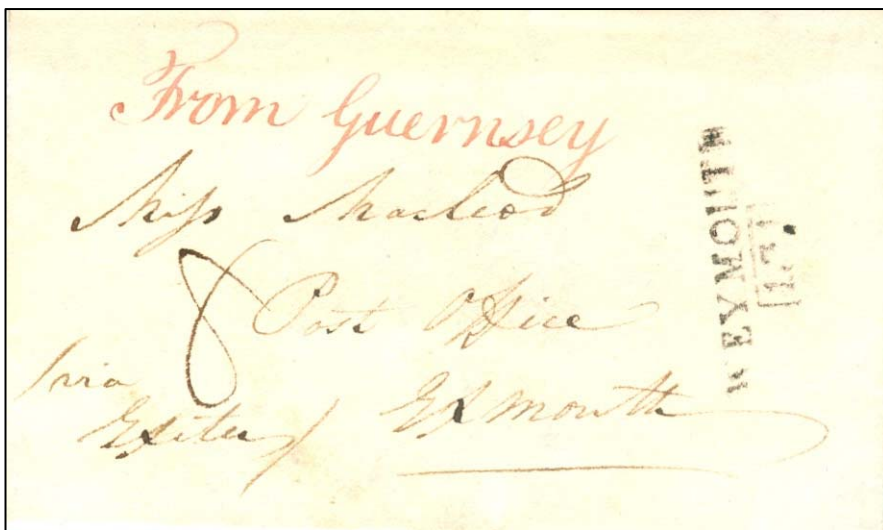 From Guernsey
Miss Macleod
8 Post Office
(via
Exeter) Exmouth
WEYMOUTH